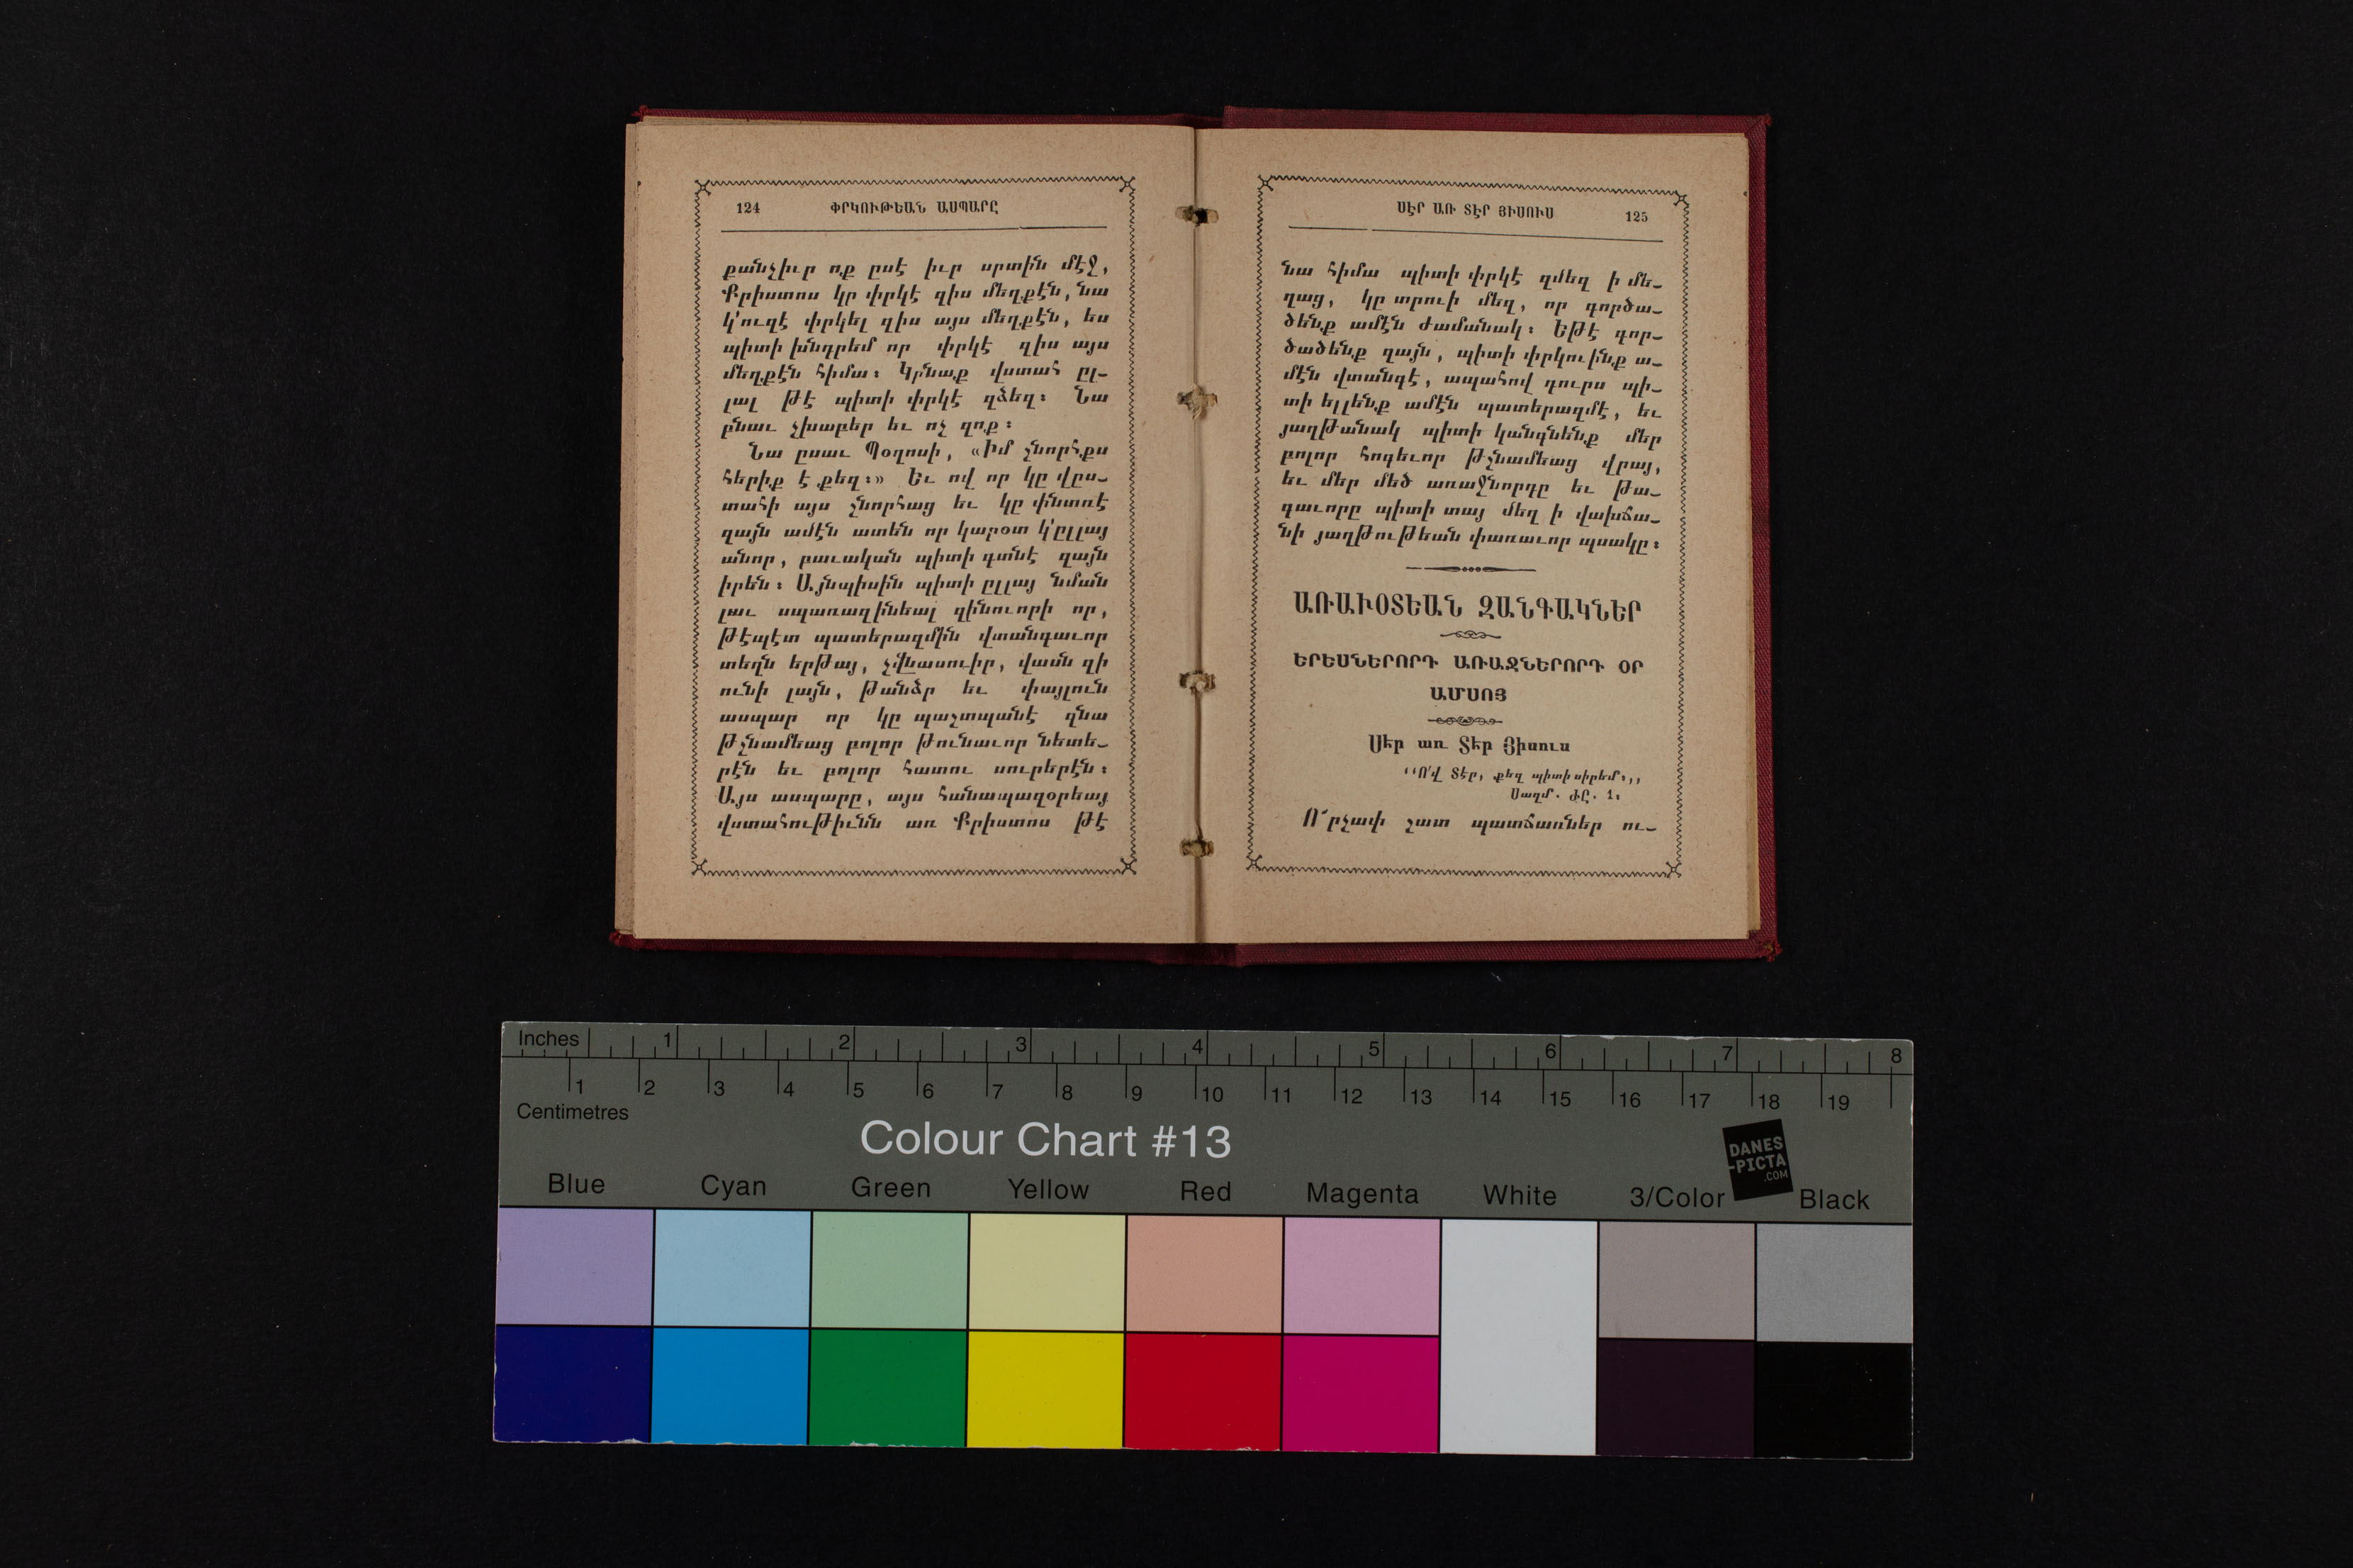 124 ՓՐԿՈՒԹԵԱՆ ԱՍՊԱՐԸ
քանչիւր ոք ըսէ իւր սրտին մէջ,
Քրիստոս կը փրկէ զիս մեղքէն, նա
կ՚ուզէ փրկել զիս այս մեղքէն, ես
պիտի խնդրեմ որ փրկէ զիս այս
մեղքէն հիմա։ Կրնաք վստահ ըլ֊
լալ թէ պիտի փրկէ զձեզ։ Նա
բնաւ չխաբեր եւ ոչ զոք։
Նա ըսաւ Պօղոսի, «Իմ շնորհքս
հերիք է քեզ։» Եւ ով որ կը վըս֊
տահի այս շնորհաց եւ կը փնտռէ
զայն ամէն ատեն որ կարօտ կ՚ըլլայ
անոր, բաւական պիտի գտնէ զայն
իրեն։ Այնպիսին պիտի ըլլայ նման
լաւ սպառազինեալ զինուորի որ,
թէպէտ պատերազմին վտանգաւոր
տեղն երթայ, չվնասուիր, վասն զի
ունի լայն, թանձր եւ փայլուն
ասպար որ կը պաշտպանէ զնա
թշնամեաց բոլոր թունաւոր նետե֊
րէն եւ բոլոր հատու սուրերէն։
Այս ասպարը, այս հանապազօրեայ
վստահութիւնն առ Քրիստոս թէ
ՍԷՐ ԱՌ ՏԷՐ ՅԻՍՈՒՍ 125
նա հիմա պիտի փրկէ զմեզ ի մե֊
ղաց, կը տրուի մեզ, որ գործա֊
ծենք ամէն ժամանակ։ Եթէ գոր֊
ծածենք զայն, պիտի փրկուինք ա֊
մէն վտանգէ, ապահով դուրս պի֊
տի ելլենք ամէն պատերազմէ, եւ
յաղթանակ պիտի կանգնենք մեր
բոլոր հոգեւոր թշնամեաց վրայ,
եւ մեր մեծ առաջնորդը եւ թա֊
գաւորը պիտի տայ մեզ ի վախճա֊
նի յաղթութեան փառաւոր պսակը։
ԱՌԱՒՕՏԵԱՆ ԶԱՆԳԱԿՆԵՐ
ԵՐԵՍՆԵՐՈՐԴ ԱՌԱՋՆԵՐՈՐԴ ՕՐ
ԱՄՍՈՅ
Սէր առ Տէր Յիսուս
‘‘Ո՛վ Տէր, քեզ պիտի սիրեմ։,,
Սաղմ. ԺԸ. 1։
Ո՜րչափ շատ պատճառներ ու֊
Inches 1 2 3 4 5 6 7 8
1 2 3 4 5 6 7 8 9 10 11 12 13 14 15 16 17 18 19
Centimetres
Colour Chart #13
DANES
-PICTA
.COM
Blue Cyan Green Yellow Red Magenta White 3/Color Black